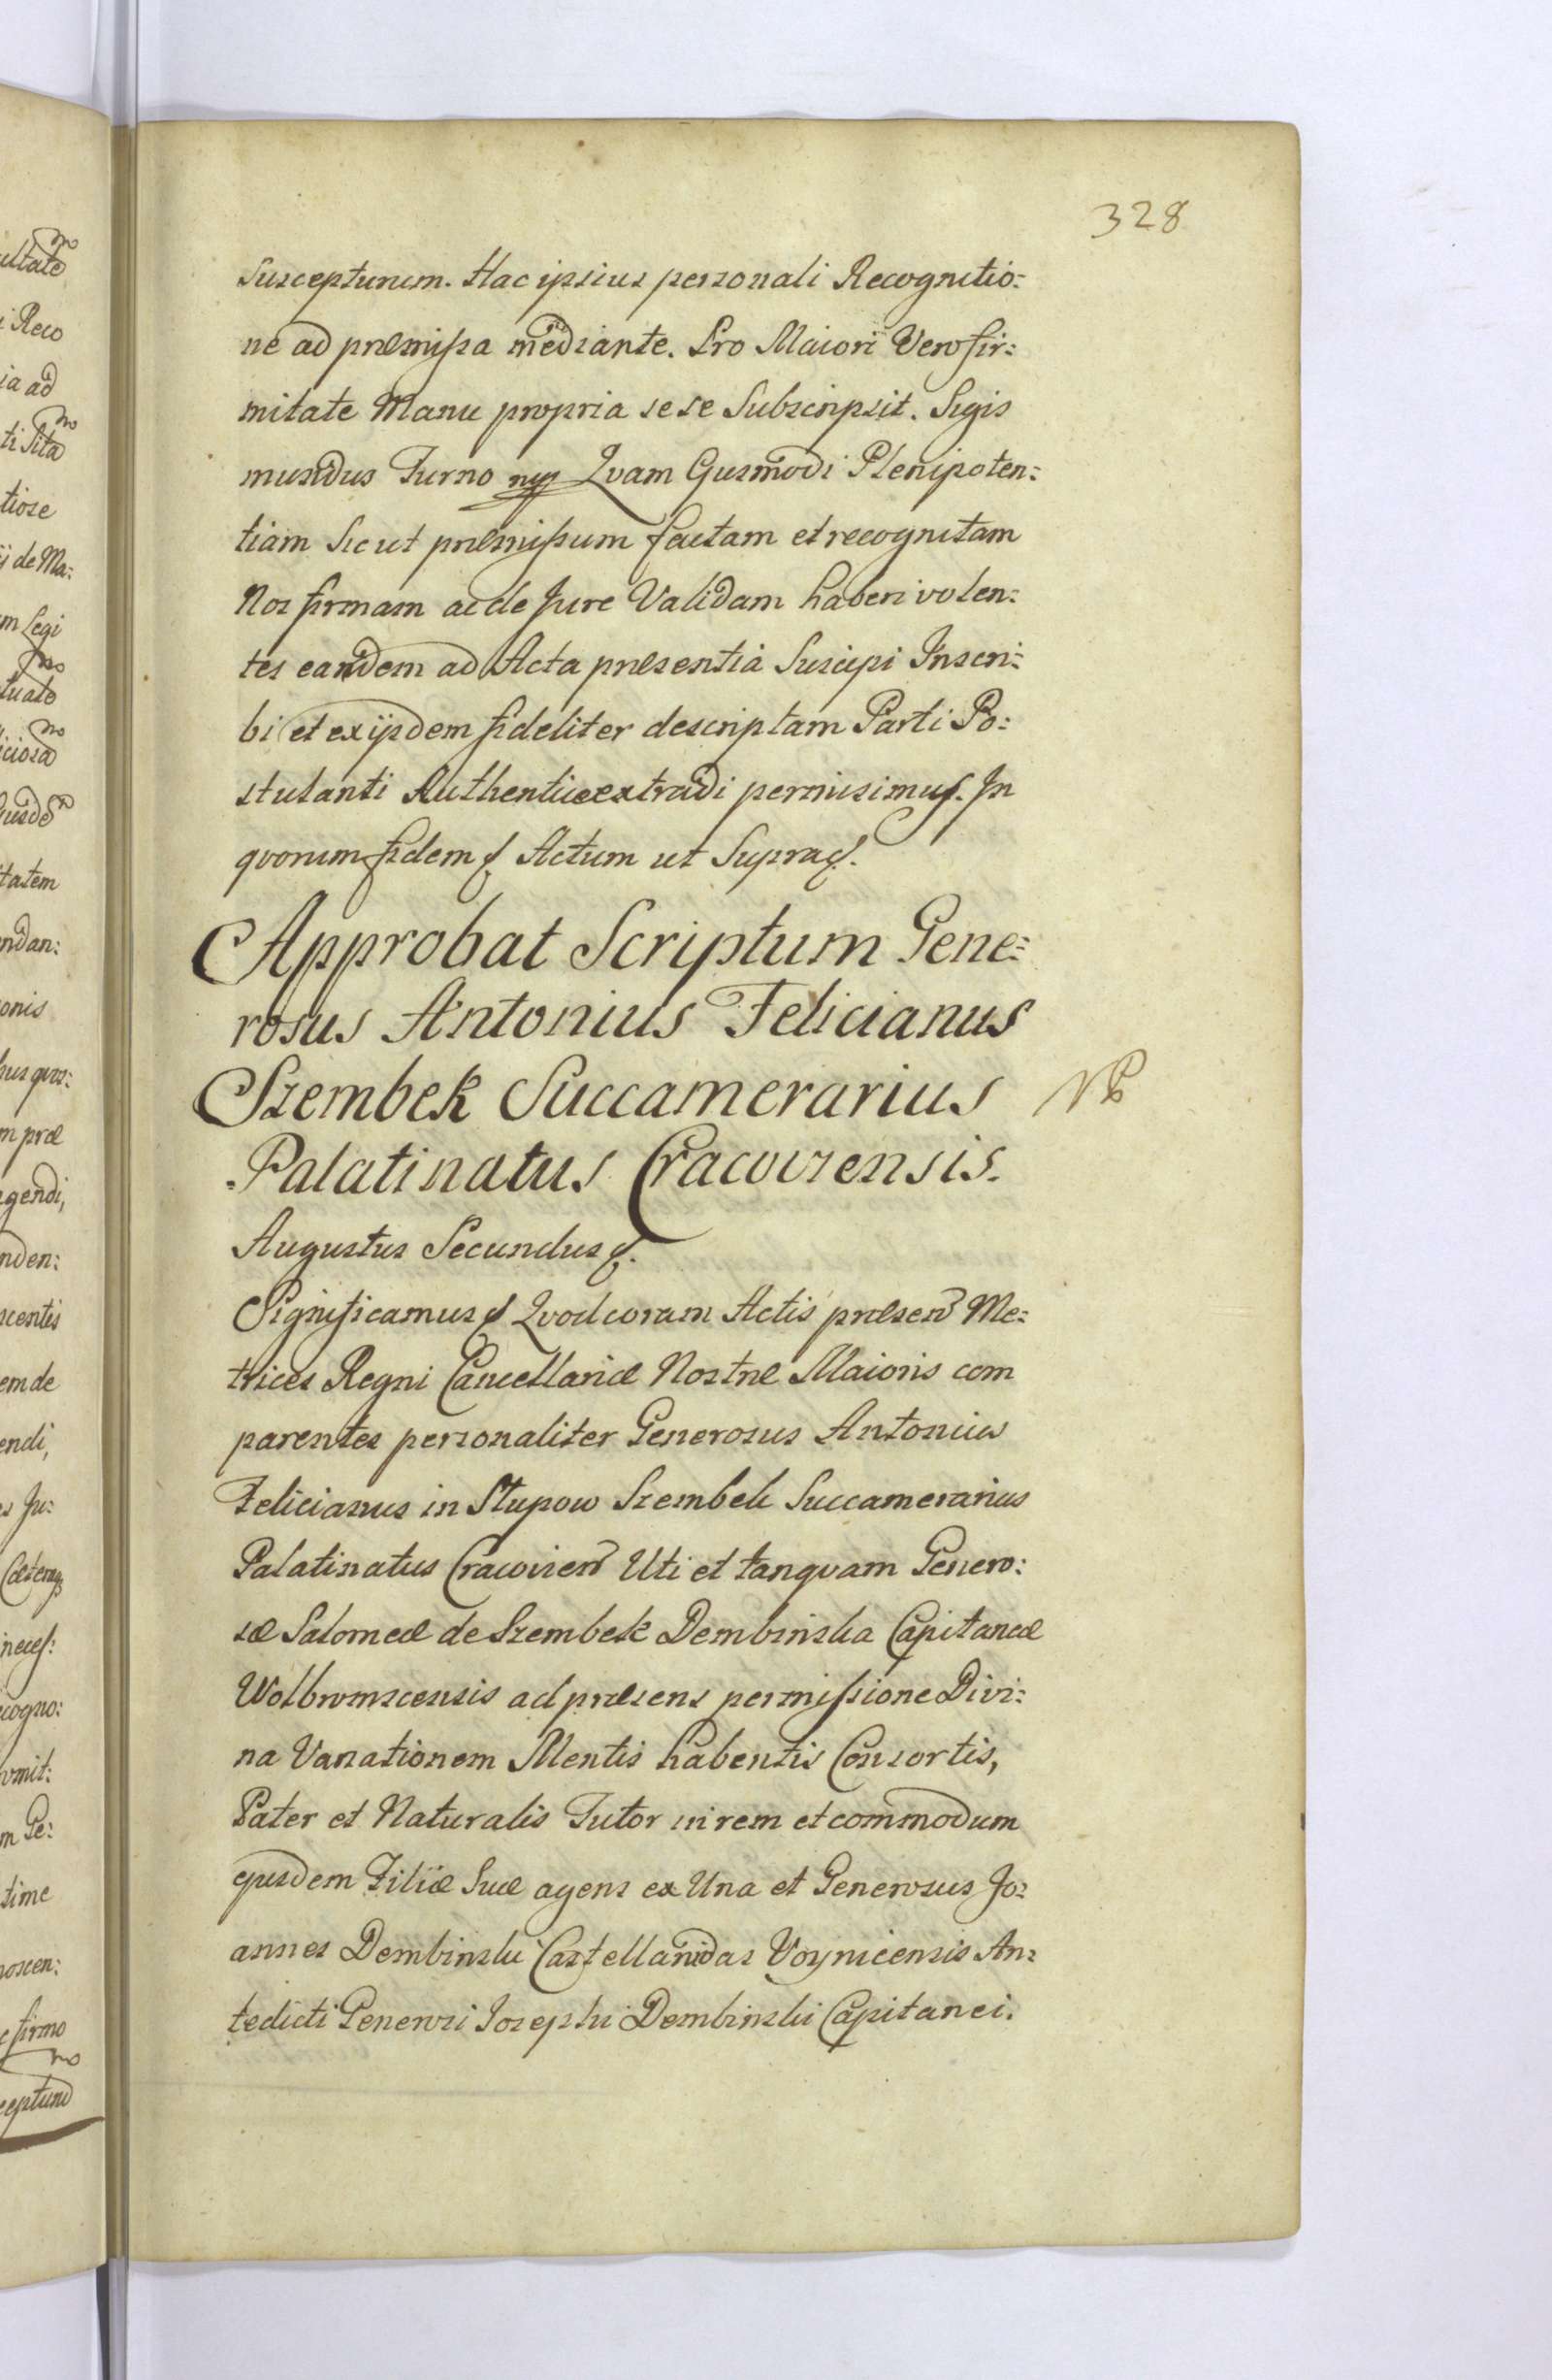 328
Suscepturum. Hac ipsius personali Recognitio:
ne ad præmissa mediante. Pro Maiori Vero fir:
mitate Manu propria sese Subscripsit. Sigis
mundus Turno mp Qvam Eiusmodi Plenipoten:
tiam Sicut præmissum factam et recognitam
Nos firmam ac de Jure Validam haberi volen:
tes eandem ad Acta præsentia Suscipi Inscri:
bi et ex ijsdem fideliter descriptam Parti Po:
stulanti Authentice extradi permisimus. In
qvorum fidem &. Actum ut Supra &.
Approbat Scriptum Gene:
rosus Antonius Felicianus
Szembek Succamerarius
Palatinatus Cracoviensis.
Augustus Secundus &.
Significamus & Qvod coram Actis præsen Me:
trices Regni Cancellariæ Nostræ Maioris com
parentes personaliter Generosus Antonius
Felicianus in Slupow Szembek Succamerarius
Palatinatus Cracovien Uti et tanqvam Genero:
sæ Salomeæ de Szembek Dembinska Capitaneæ
Wolbromscensis ad præsens permissione Divi:
na Variationem Mentis habentis Consortis,
Pater et Naturalis Tutor in rem et commodum
ejusdem Filiæ Suæ agens ex Una et Generosus Jo:
annes Dembinski Castellanidas Voynicensis An:
tedicti Generosi Josephi Dembinski Capitanei.